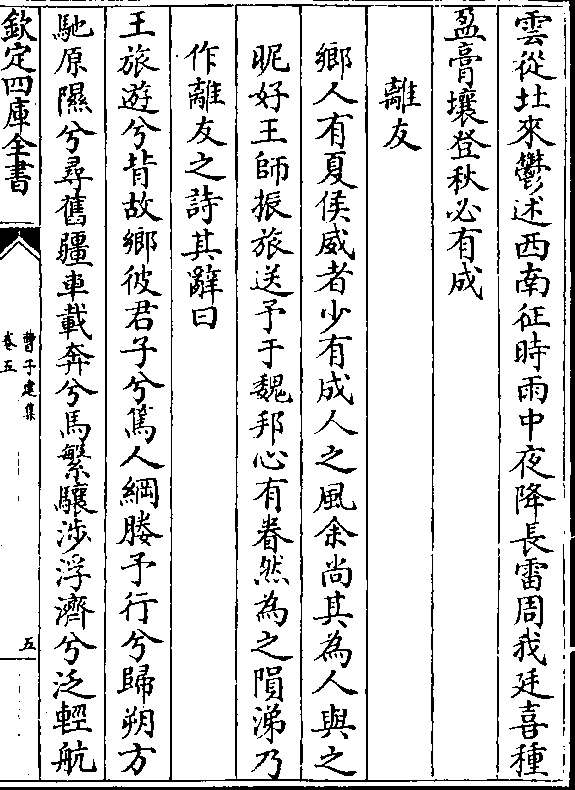 雲從北來鬱述西南征時雨中夜降長雷周我廷喜種
盈膏壤登秋必有成
離友
鄉人有夏侯威者少有成人之風余尚其為人與之
昵好王師振旅送予于魏邦心有眷然為之隕涕乃
作離友之詩其辭曰
王旅遊兮背故鄉彼君子兮篤人綱媵予行兮歸朔方
馳原隰兮尋舊疆車載奔兮馬繁驤涉浮濟兮泛輕航
欽定四庫全書
曹子建集
卷五
五